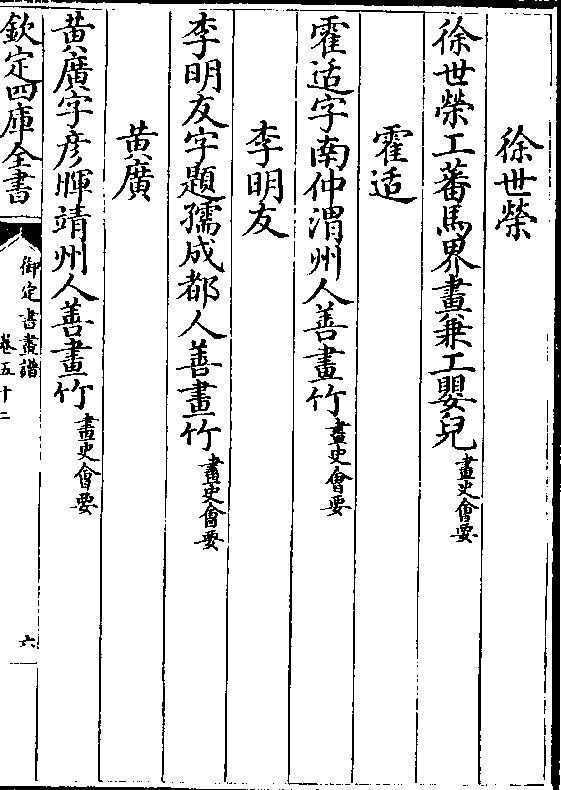 徐世榮
徐世榮工蕃馬界畫兼工嬰兒畫史會要
霍适
霍适字南仲渭州人善畫竹畫史會要
李明友
李明友字題孺成都人善畫竹畫史會要
黄廣
黄廣字彦暉靖州人善畫竹畫史會要
欽定四庫全書
御定書畫譜
卷五十二
六